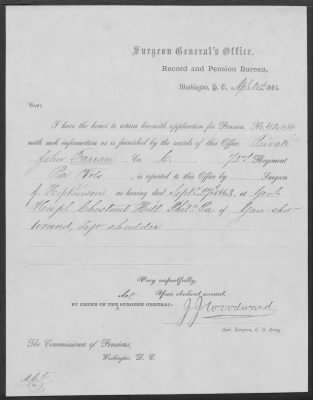 Surgeon General's Office,
Record and Pension Bureau,
Washington, D. C.,
Sir:
I have the honor to return herewith application for Pension, No.
with such information as is furnished by the records of this Office. Private
John Co. 72d Regiment
Pa Vols is reported to this Office by Surgeon
J. Hopkinson as having died Sept 1863, at Genl
Hospl Chestnut Hill Pa of Gun shot
wound, left shoulder
Very respectfully,
Your obedient servant,
BY ORDER OF THE Act SURGEON GENERAL:
J J Woodward
Ass. Surgeon, U. S. Army.
The Commissioner of Pensions,
Washington, D. C.